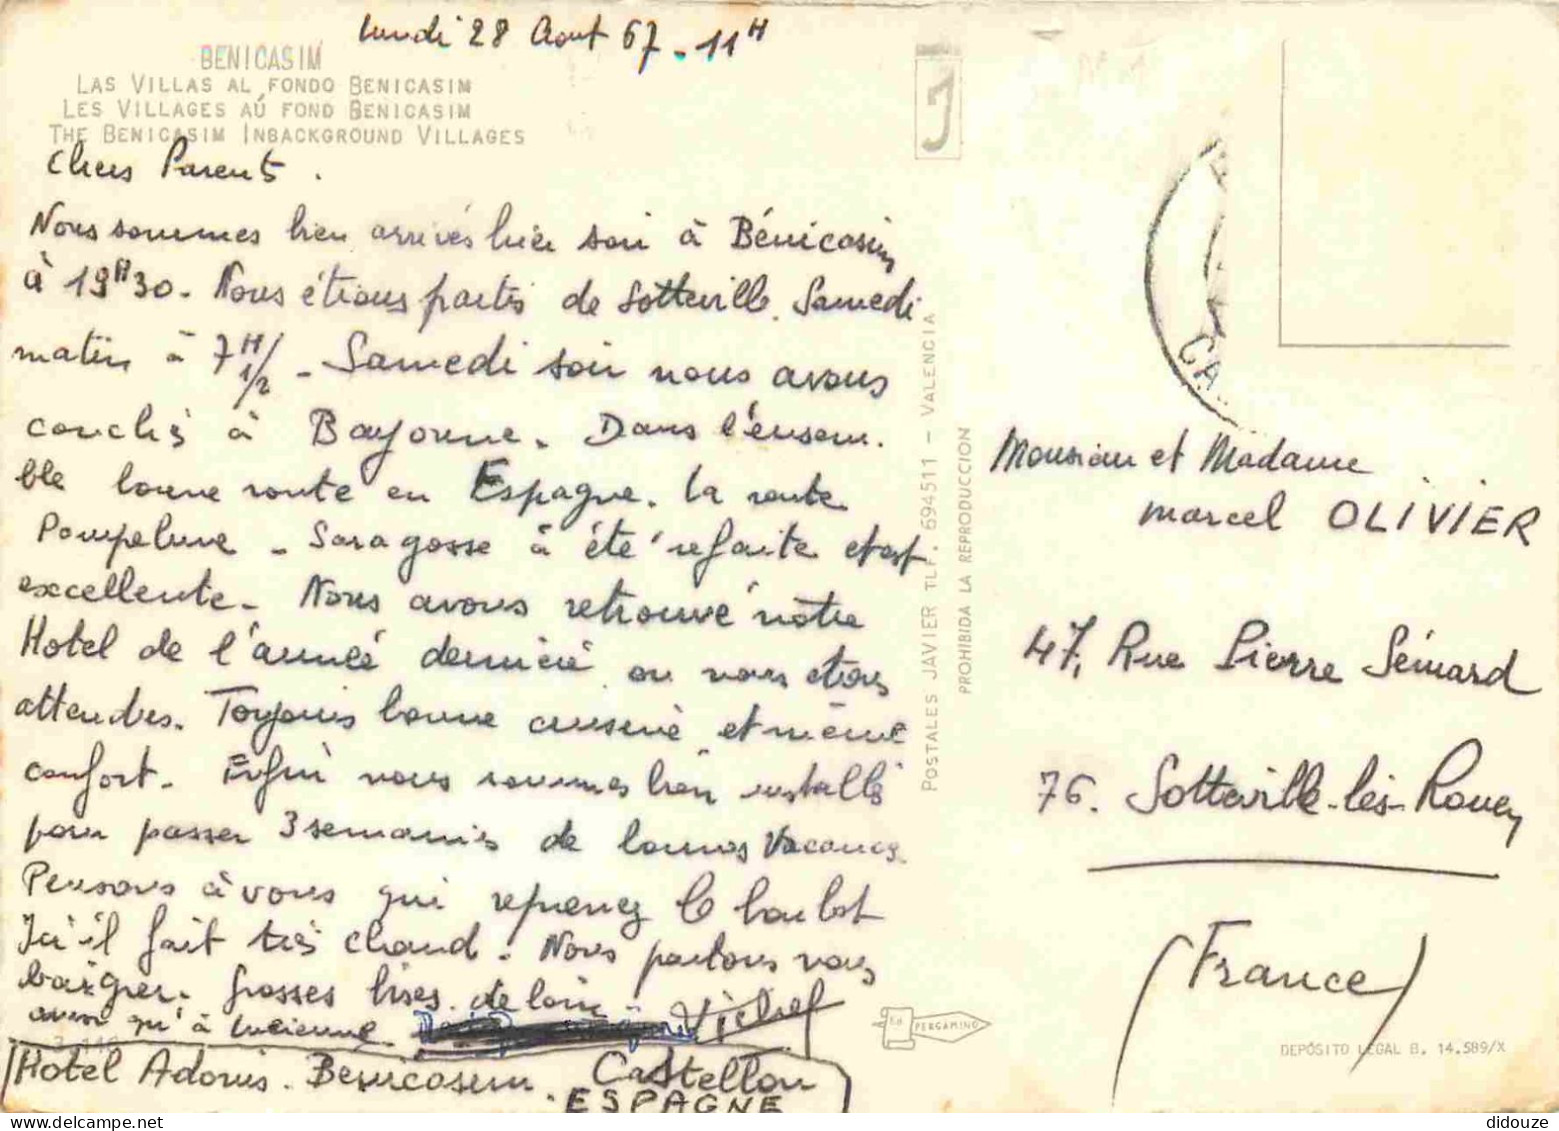 lundi 28 Aout 67 - 11H
BENICASIM
LAS VILLAS AL FONDO BENICASIM
LES VILLAGES AÚ FOND BENICASIM
THE BENICASIM INBACKGROUND VILLAGES
Chers Parents.
Nous sommes bien arrivés hier soir à Bénicasim
à 19H30. Nous étions partis de Sotteville. Samedi
matin à 7H 1/2 - Samedi soir nous avons
couchés à Bayonne. Dans l'ensem.
ble bonne route en Espagne. la route
Pampelune - Saragosse à été refaite et est
excellente. Nous avons retrouvé notre
Hotel de l'année dernière ou nous étions
attendus. Toujours bonne cuisine et même
confort. Enfin nous sommes bien installés
pour passer 3 semaines de bonnes Vacances.
Pensons à vous qui reprenez le boulot
Ici il fait très chaud. Nous partons nous
baigner. Grosses bises de loin
ainsi qu'à Lucienne. Michel
Hotel Adonis. Benicasim. Castellon
ESPAGNE
POSTALES JAVIER TLF. 694511 - VALENCIA
PROHIBIDA LA REPRODUCCION
J
CA
Monsieur et Madame
Marcel OLIVIER
47, Rue Pierre Sémard
76. Sotteville-lès-Rouen
(France)
Ed. PERGAMINO
DEPÓSITO LEGAL B. 14.589/X
didouze